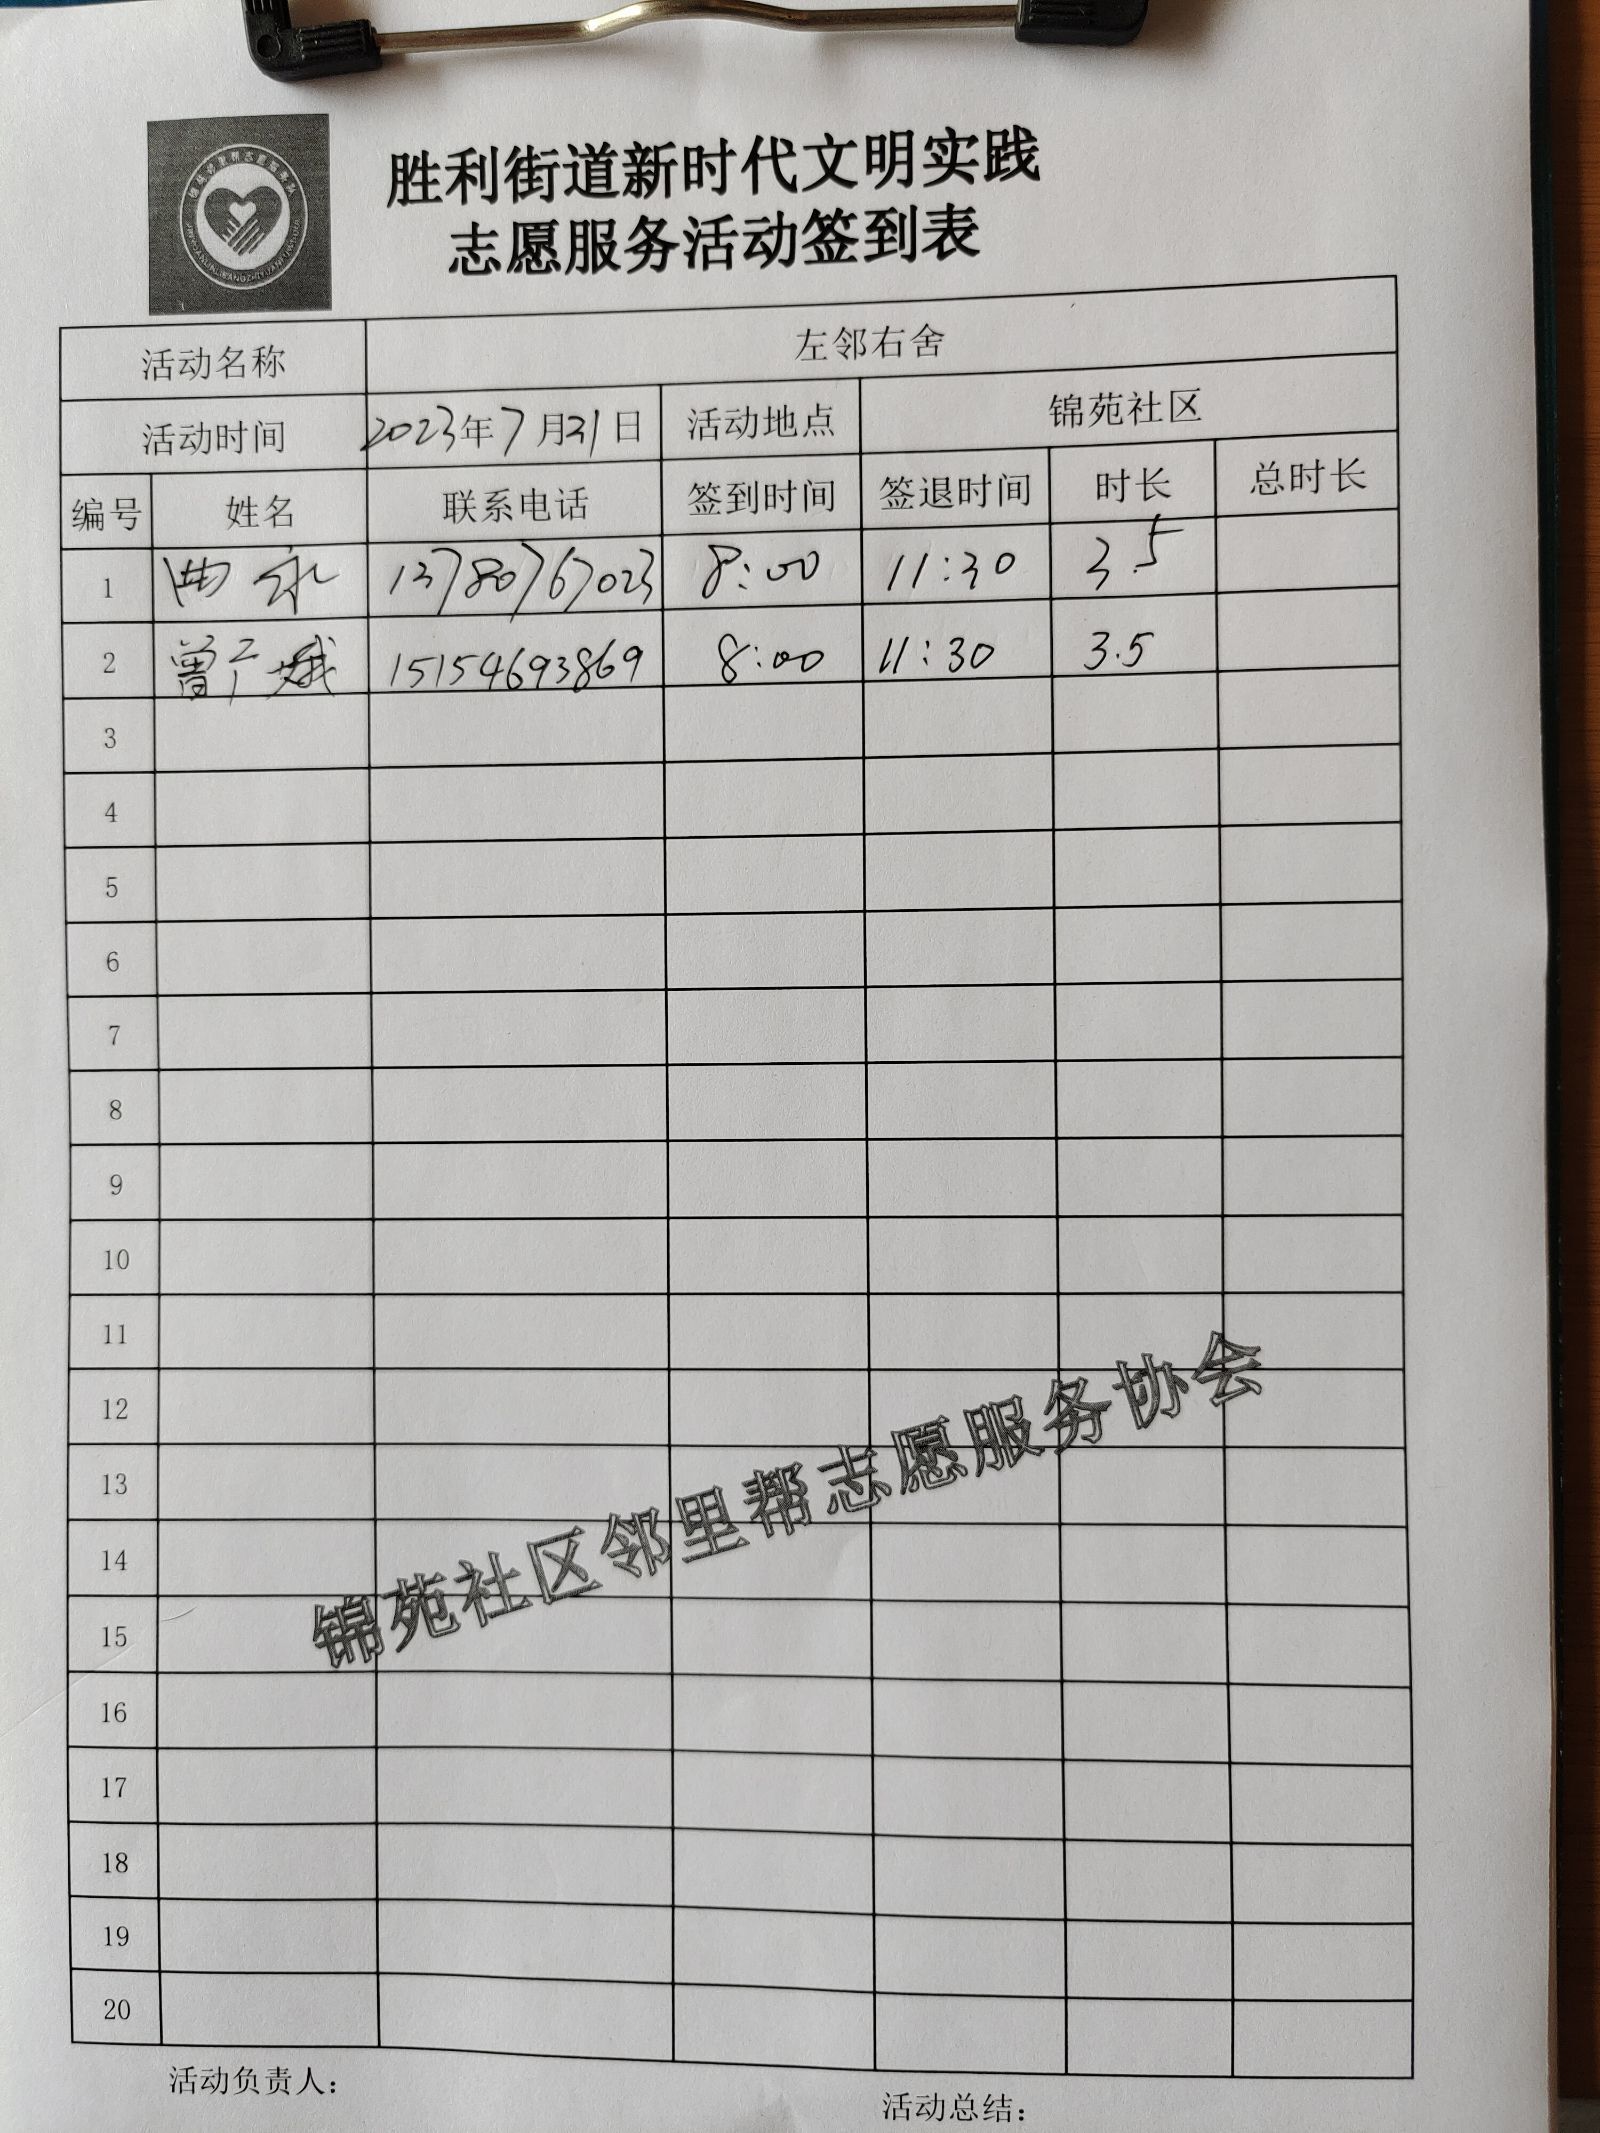 胜利街道新时代文明实践
志愿服务活动签到表
活动名称 左邻右舍
活动时间 2023年7月31日 活动地点 锦苑社区
编号 姓名 联系电话 签到时间 签退时间 时长 总时长
1 曲永 13780767023 8:00 11:30 3.5
2 曾广娥 15154693869 8:00 11:30 3.5
3
4
5
6
7
8
9
10
11
12
13
14
15
16
17
18
19
20
锦苑社区邻里帮志愿服务协会
活动负责人：
活动总结：